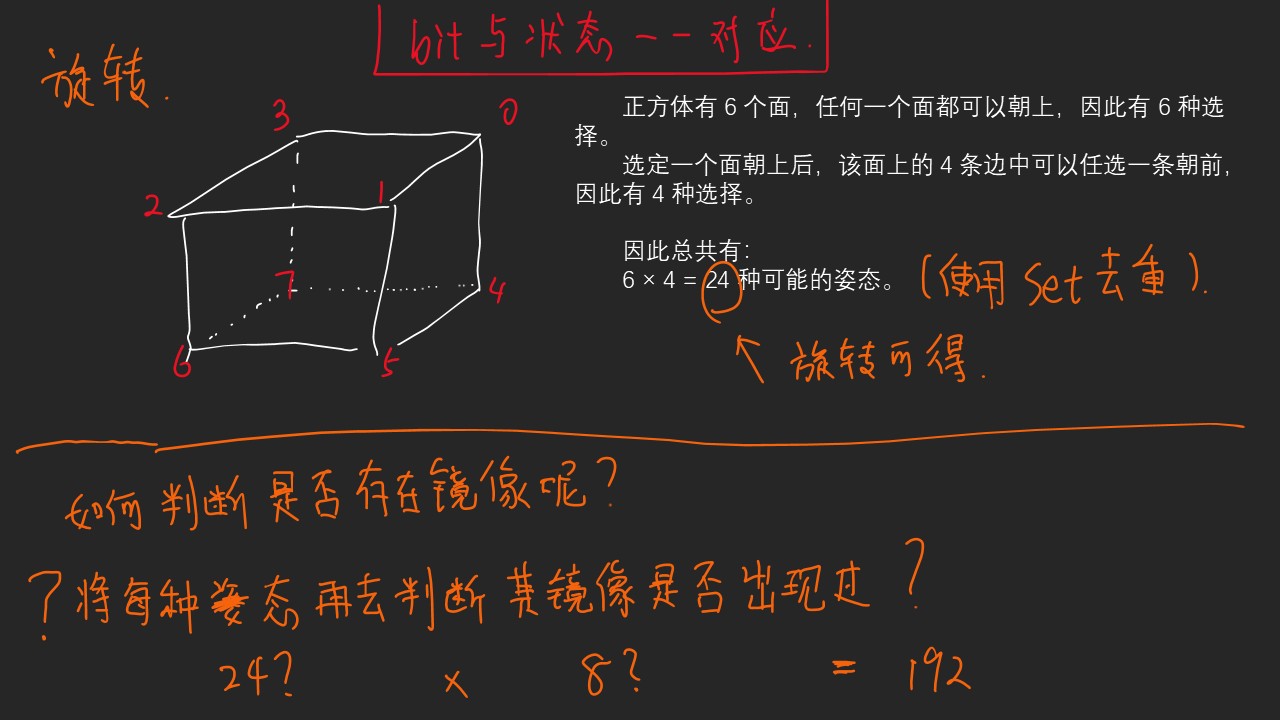 bit与状态一一对应.
旋转.
3
0
2
1
7
4
6
5
正方体有 6 个面，任何一个面都可以朝上，因此有 6 种选
择。
选定一个面朝上后，该面上的 4 条边中可以任选一条朝前，
因此有 4 种选择。
因此总共有：
6 × 4 = 24 种可能的姿态。 (使用 Set 去重).
旋转可得.
如何判断是否存在镜像呢?
? 将每种姿态再去判断其镜像是否出现过 ?
24? x 8? = 192